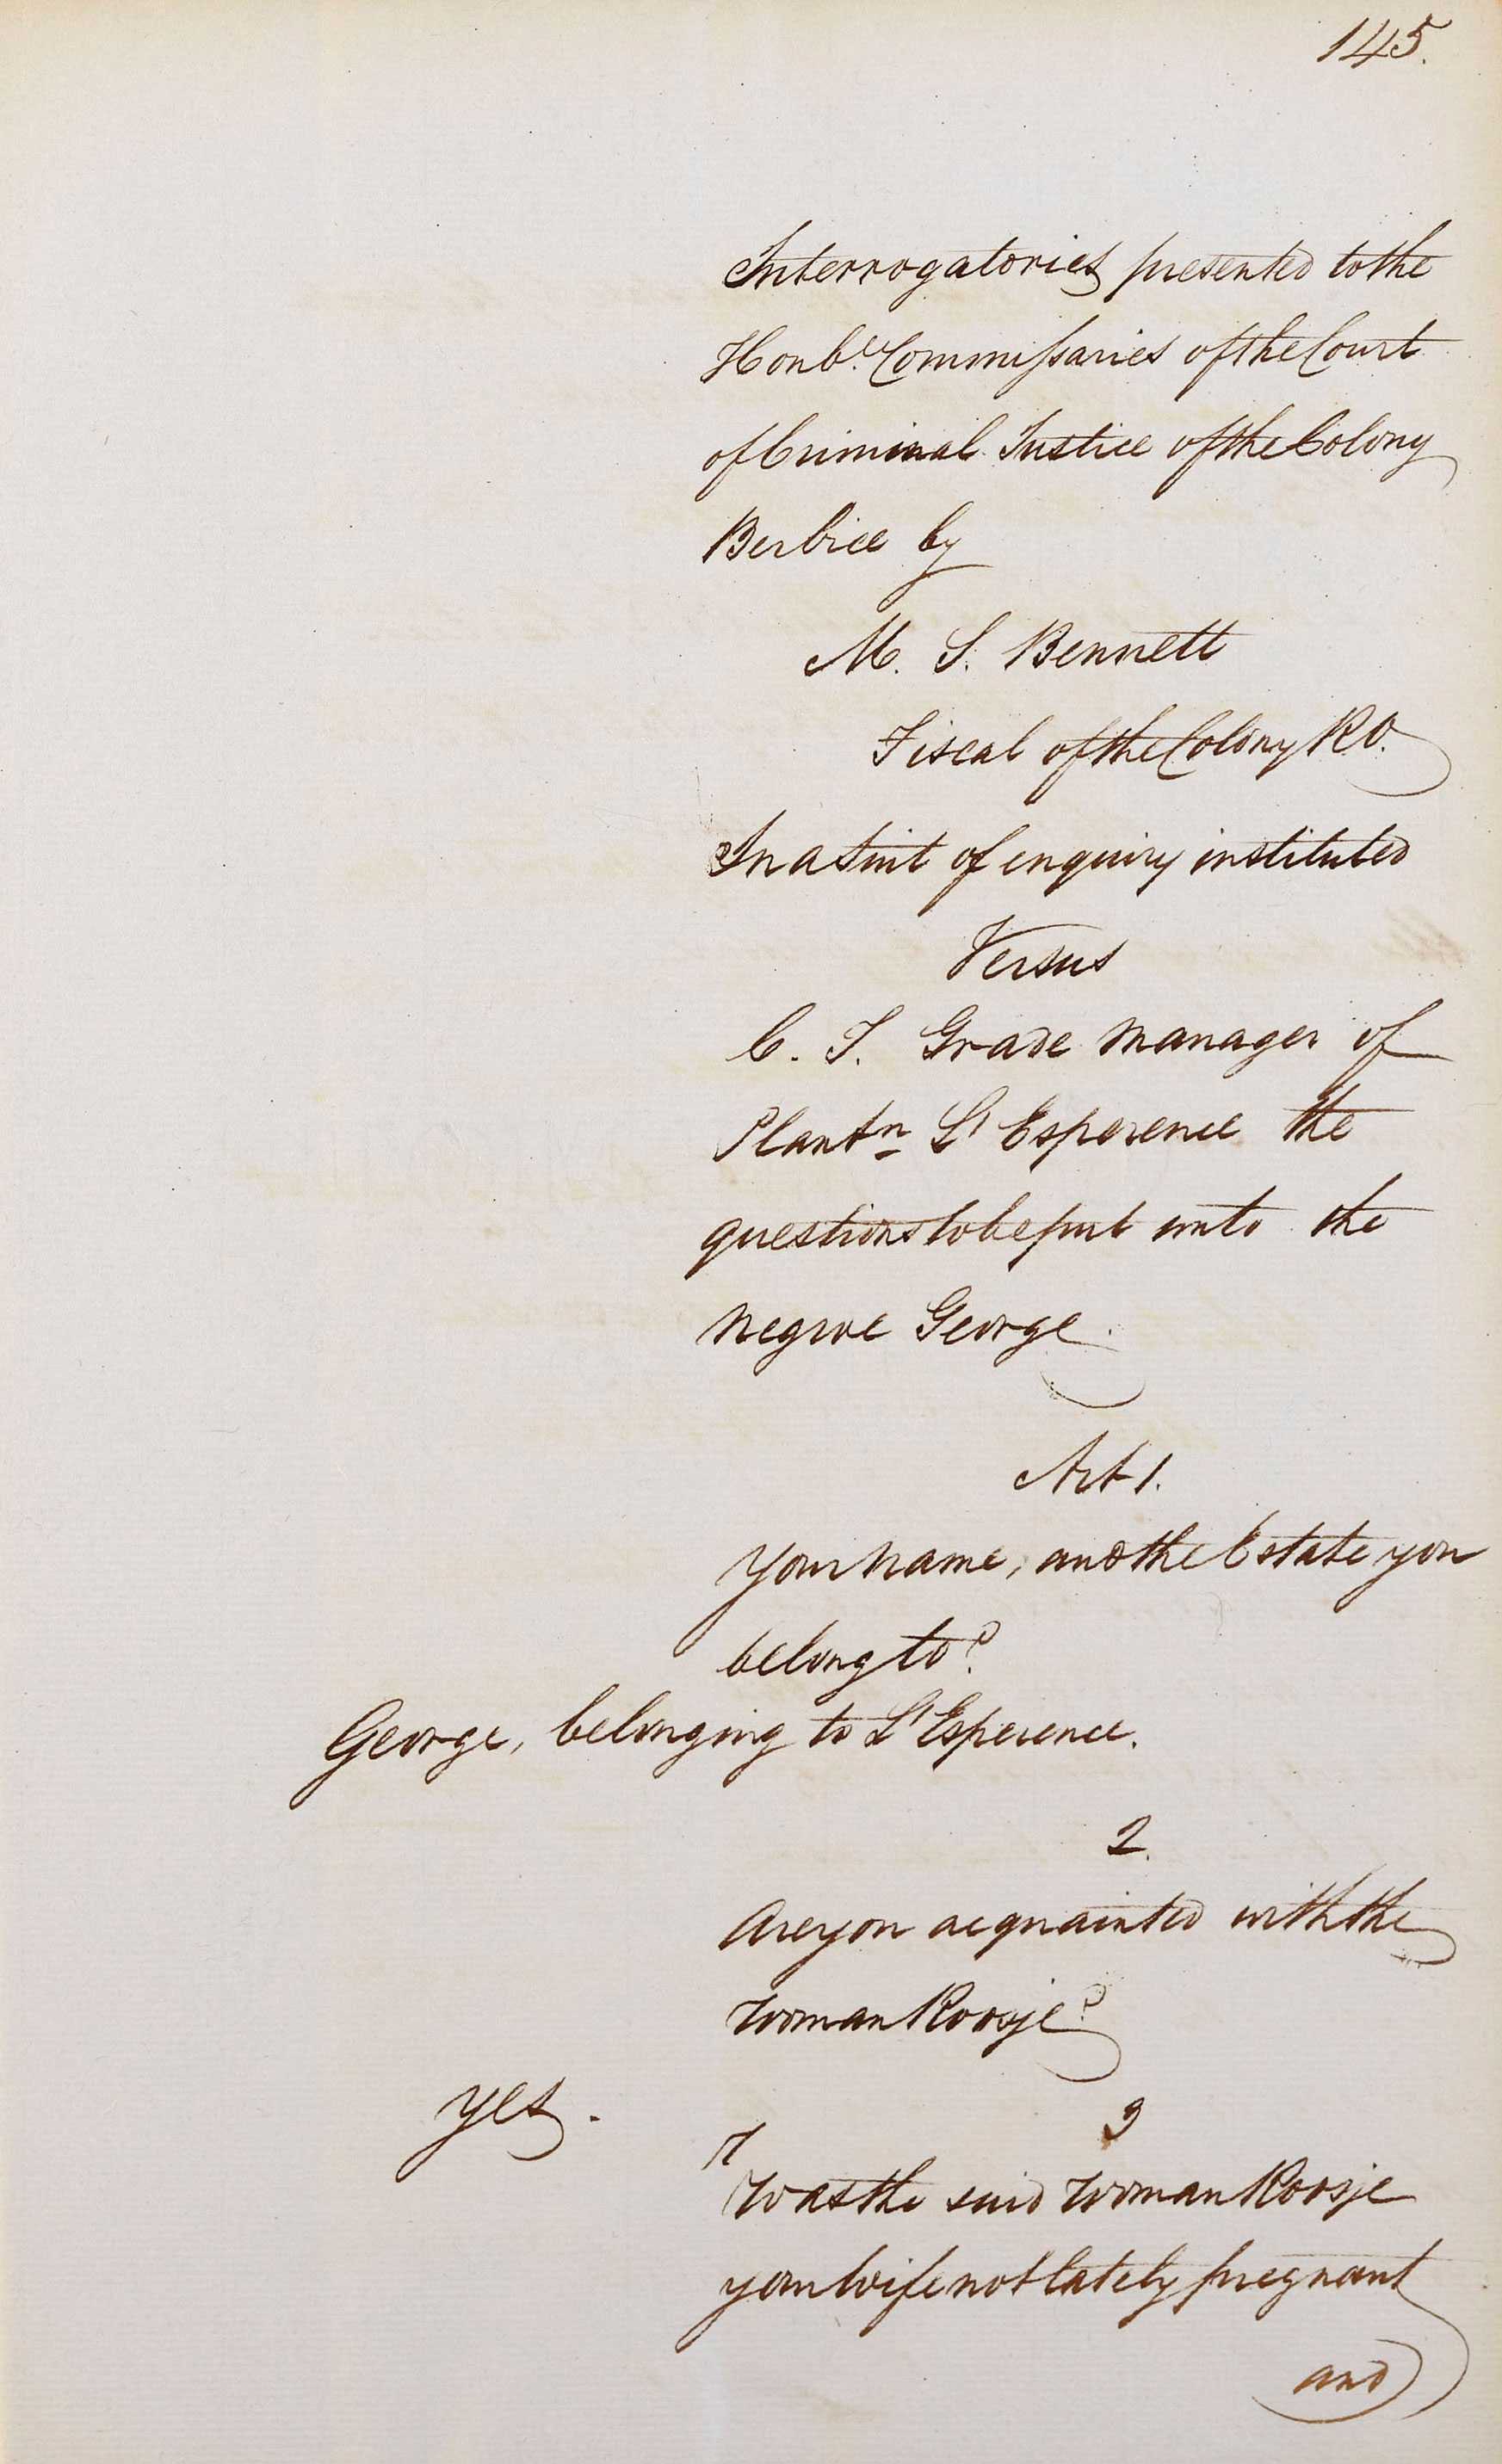 145.
Interrogatories presented to the
Honb.le Commissaries of the Court
of Criminal Justice of the Colony
Berbice by
M. S. Bennett
Fiscal of the Colony R.O.
In a Suit of enquiry instituted
Versus
C. J. Grade Manager of
Plantn L'Esperence the
questions to be put unto the
Negroe George.
Art 1.
Your Name, and the Estate you
belong to?
George, belonging to L'Esperence.
2.
Are you acquainted with the
Woman Roosje?
Yes.
3
Was the said Woman Roosje
your Wife not lately pregnant
and